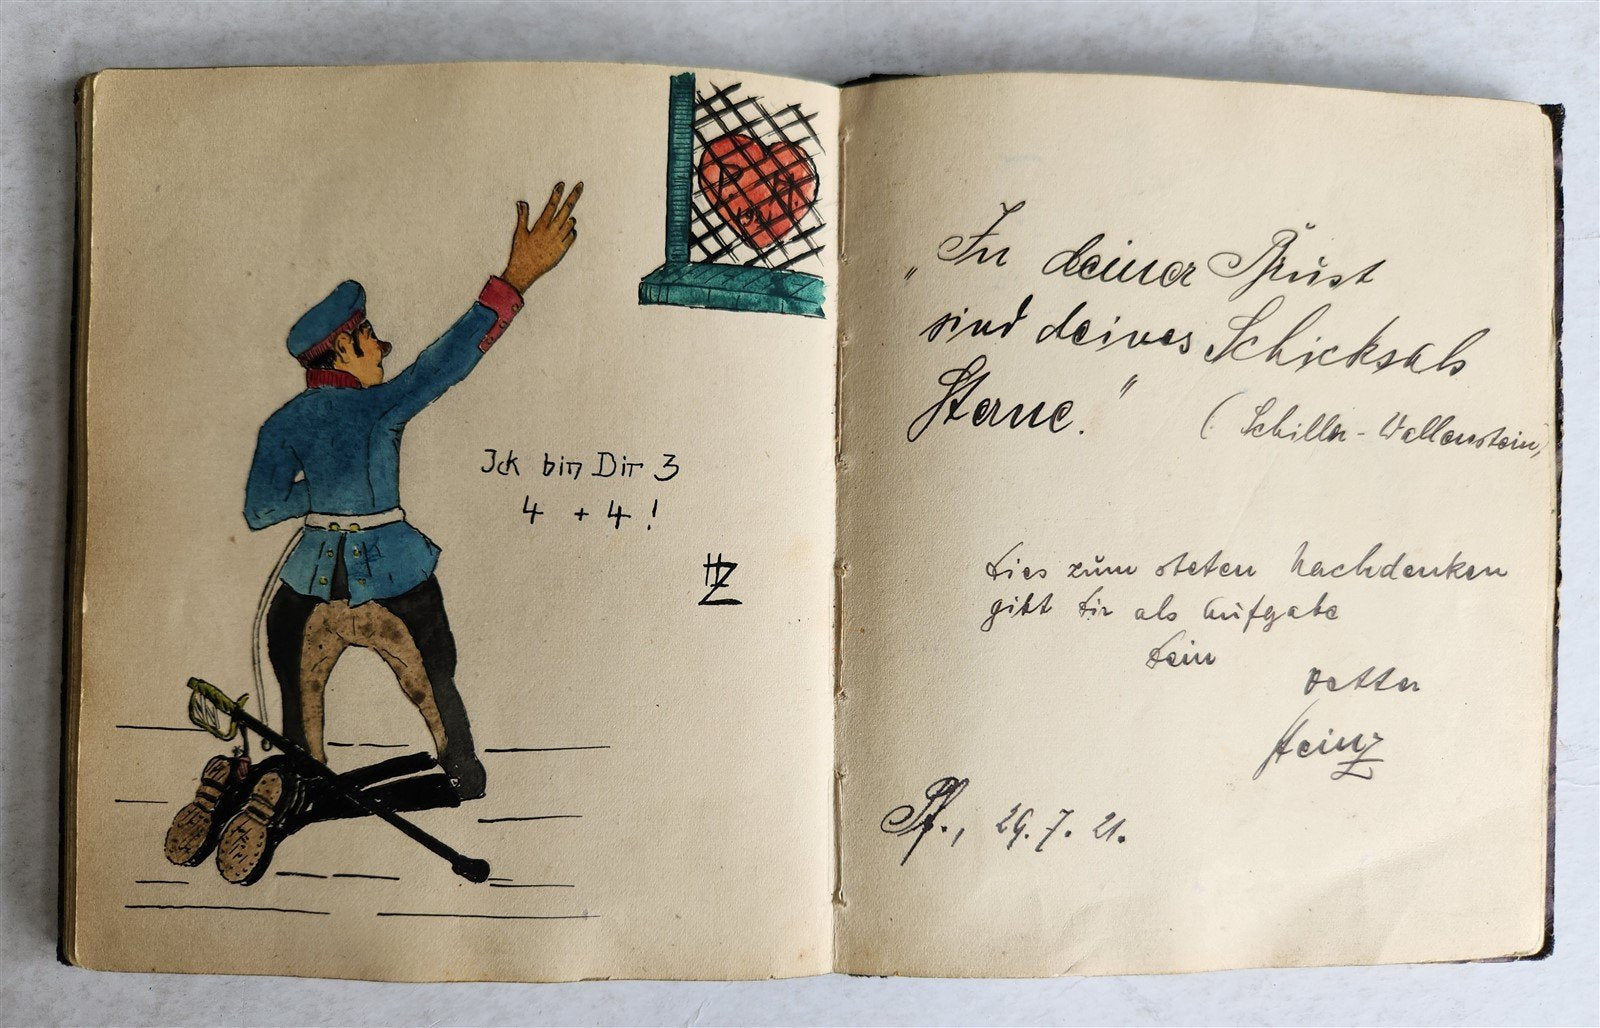 Ick bin Dir 3
4 + 4 !
HZ
„In deiner Brust
sind deines Schicksals
Sterne."
(Schiller - Wallenstein)
Dies zum steten Nachdenken
gibt Dir als Aufgabe
Dein
Vetter
Heinz
Pf., 29. 7. 21.